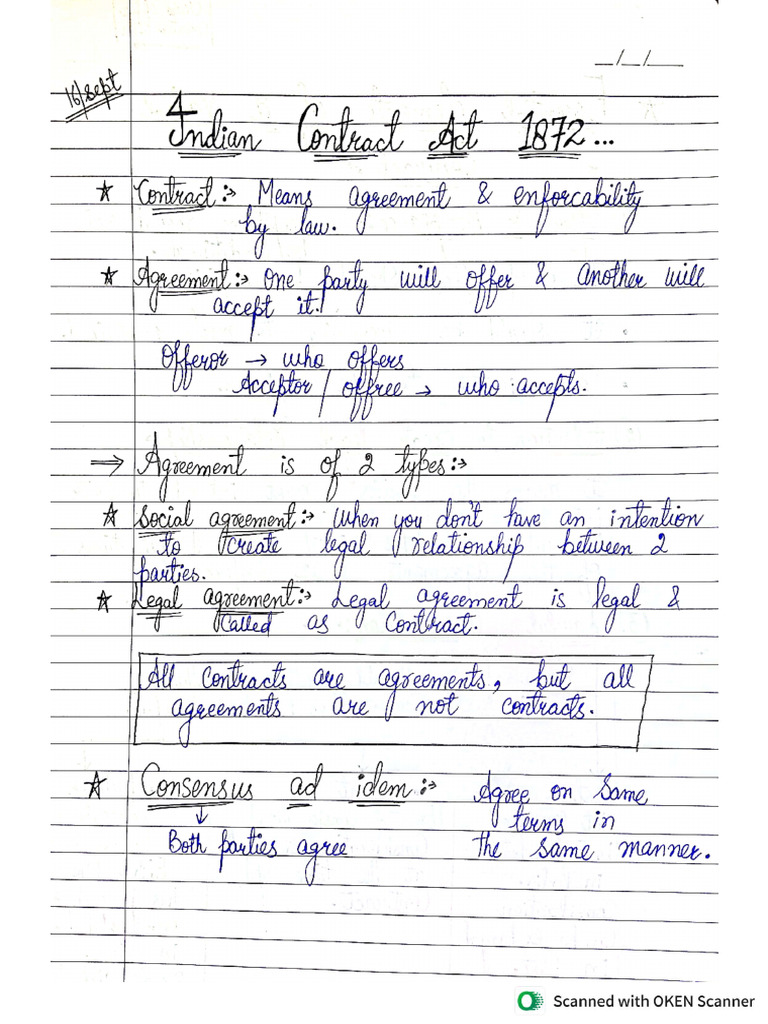 _/_/__
16/Sept
4
Indian Contract Act 1872...
★ Contract:- Means agreement & enforcability
by law.
★ Agreement:- One party will offer & Another will
accept it.
Offeror → who offers
Acceptor / offree → who accepts.
⇒ Agreement is of 2 types:-
★ Social agreement:- When you don't have an intention
to create legal relationship between 2
parties.
★ Legal agreement:- Legal agreement is legal &
called as Contract.
All contracts are agreements, but all
agreements are not contracts.
★ Consensus ad idem:- Agree on same
↓ terms in
Both parties agree the same manner.
Scanned with OKEN Scanner